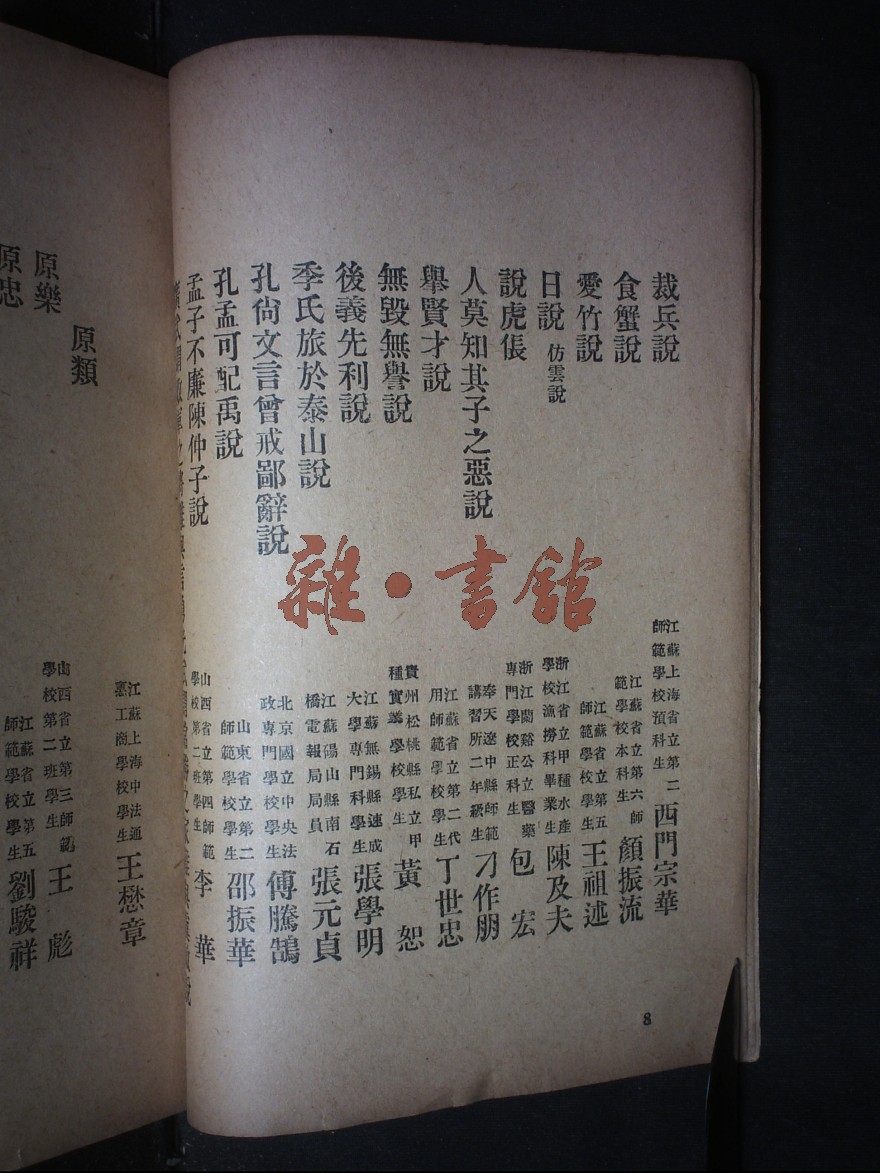 裁兵說
江蘇上海省立第二師範學校預科生 西門宗華
食蟹說
江蘇省立第六師範學校本科生 顏振流
愛竹說
江蘇省立第五師範學校學生 王祖述
日說 仿雲說
浙江省立甲種水產學校漁撈科畢業生 陳及夫
說虎倀
浙江蘭谿公立醫藥專門學校正科生 包宏
人莫知其子之惡說
奉天遼中縣師範講習所二年級生 刁作朋
舉賢才說
江蘇省立第二代用師範學校學生 丁世忠
無毀無譽說
貴州松桃縣私立甲種實業學校學生 黃恕
後義先利說
江蘇無錫縣速成大學專門科學生 張學明
季氏旅於泰山說
江蘇碭山縣南石橋電報局局員 張元貞
孔尙文言曾戒鄙辭說
北京國立中央法政專門學校學生 傅騰鵠
孔孟可配禹說
山東省立第二師範學校學生 邵振華
孟子不廉陳仲子說
山西省立第四師範學校第二班學生 李華
8
原類
江蘇上海中法通惠工商學校學生 王懋章
原樂
山西省立第三師範學校第二班學生 王彪
原忠
江蘇省立第五師範學校學生 劉駿祥
雜·書館